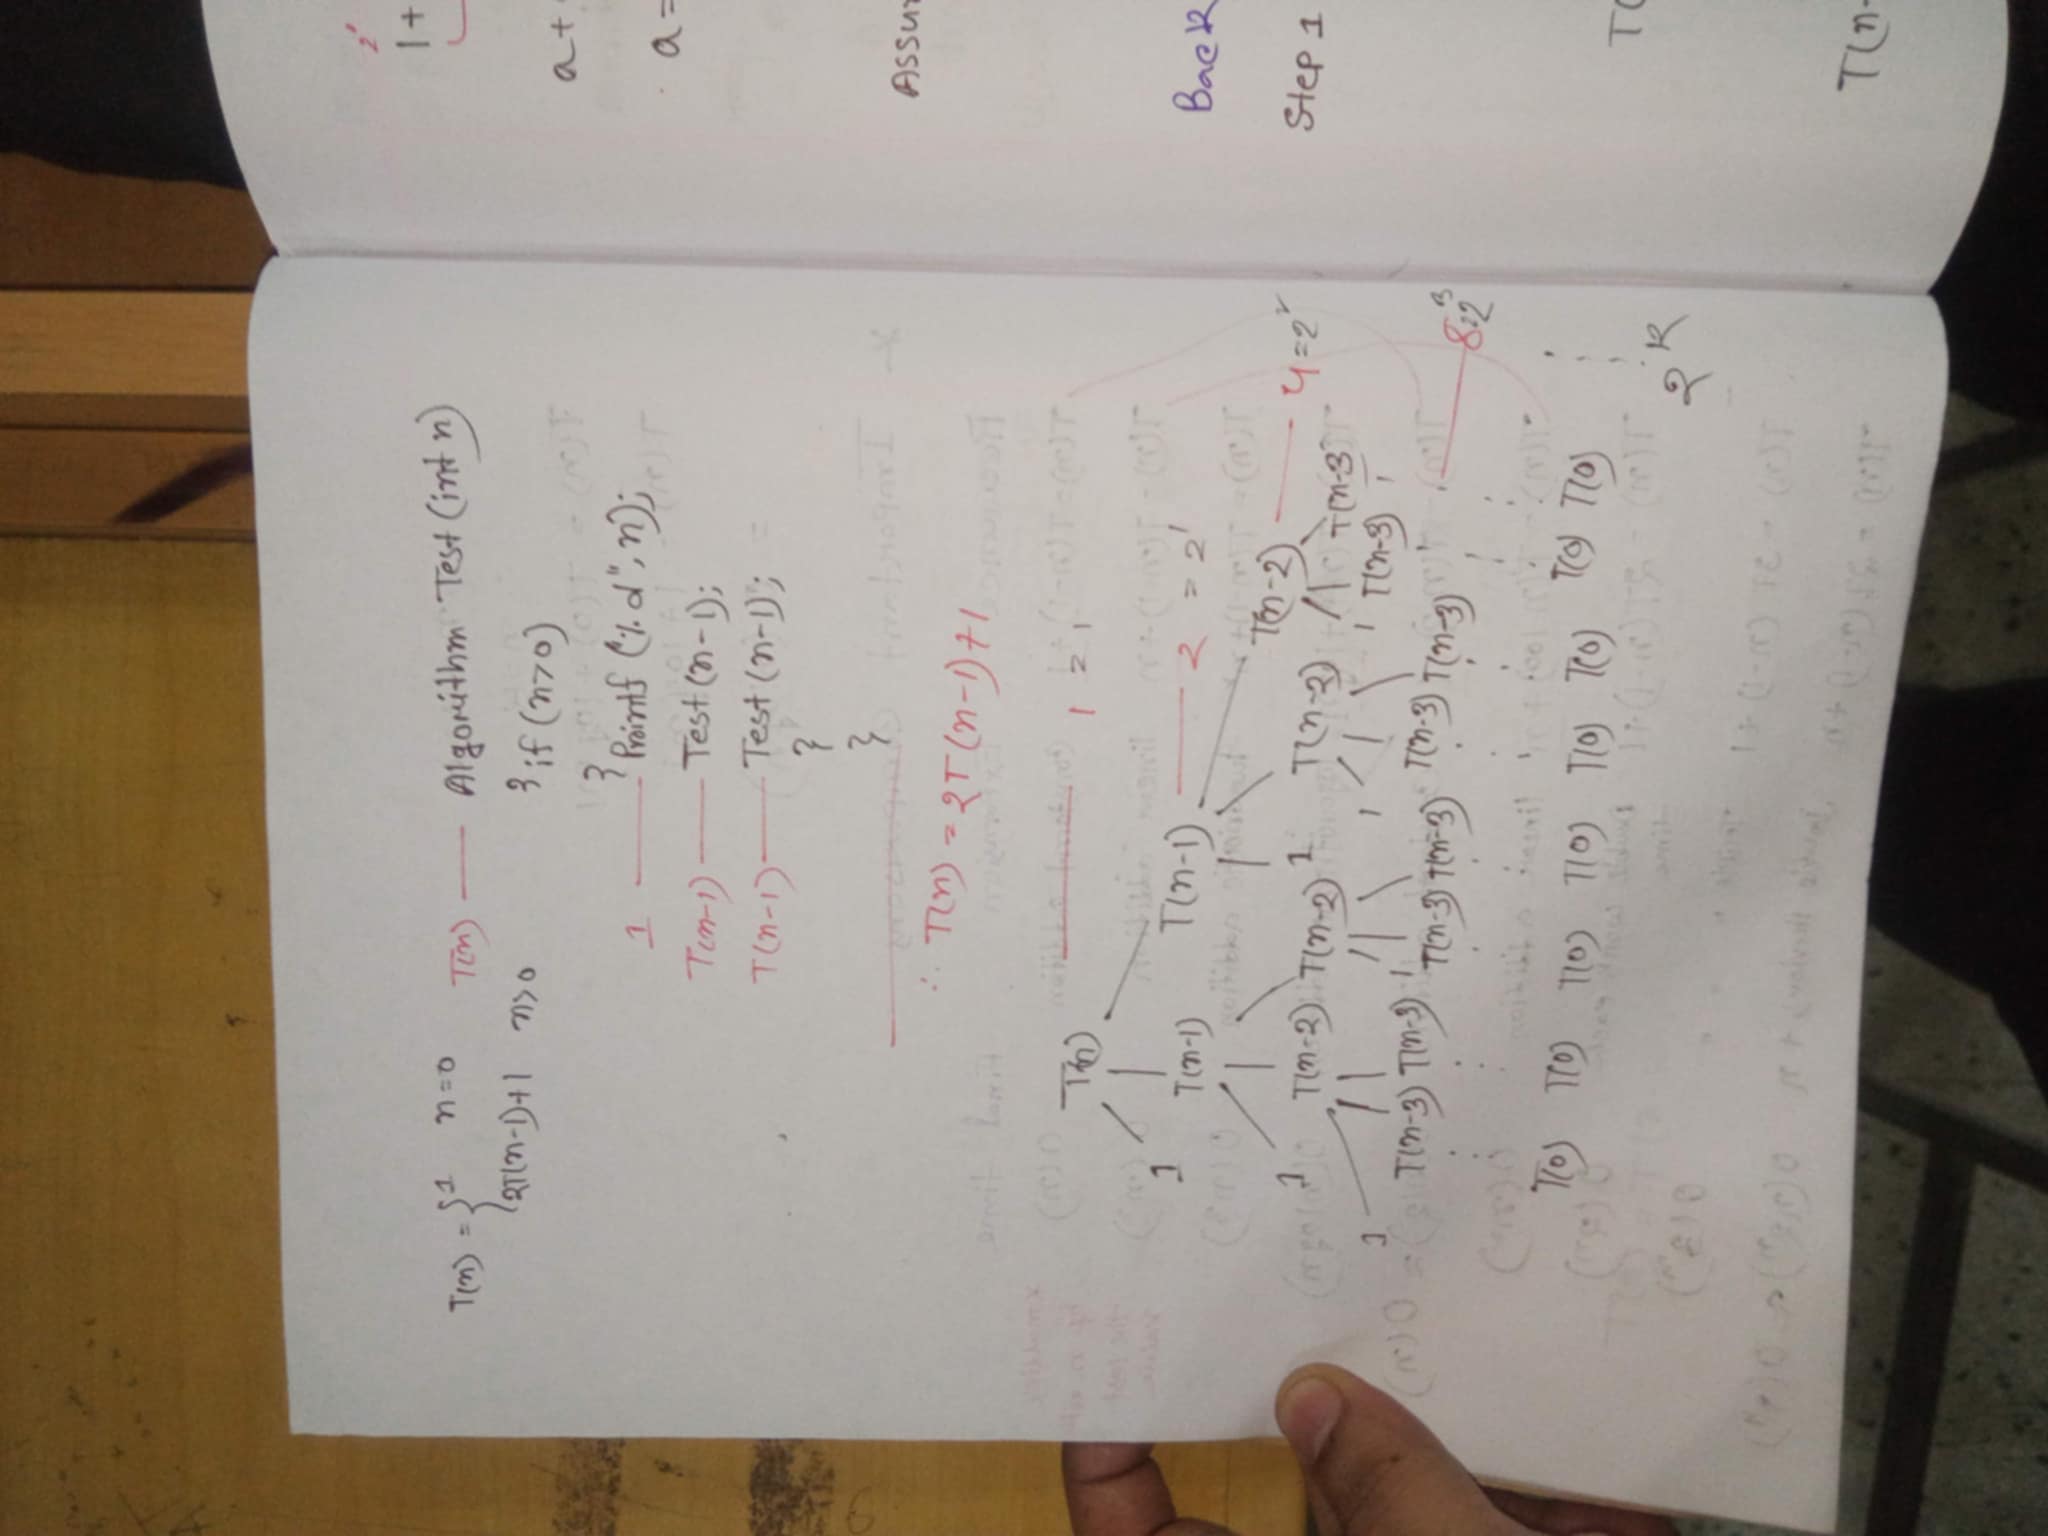 T(n) = { 1 n=0 T(n) — Algorithm Test (int n)
2T(n-1)+1 n>0 { if (n>0)
{
1 — Printf ("%d", n);
T(n-1) — Test (n-1);
T(n-1) — Test (n-1);
}
}
∴ T(n) = 2T(n-1)+1
T(n) — 1 = 1
1 T(n-1) T(n-1) — 2 = 2¹
T(n-2) — 4 = 2²
1 T(n-2) T(n-2) 1 T(n-2) T(n-3)
1 1 1 1 T(n-3)
T(n-3) T(n-3) T(n-3) T(n-3) T(n-3) T(n-3) — 8=2³
T(0) T(0) T(0) T(0) T(0) T(0) T(0) T(0)
2^K
1+
a+
a=
Back
Step 1
T(
T(n-